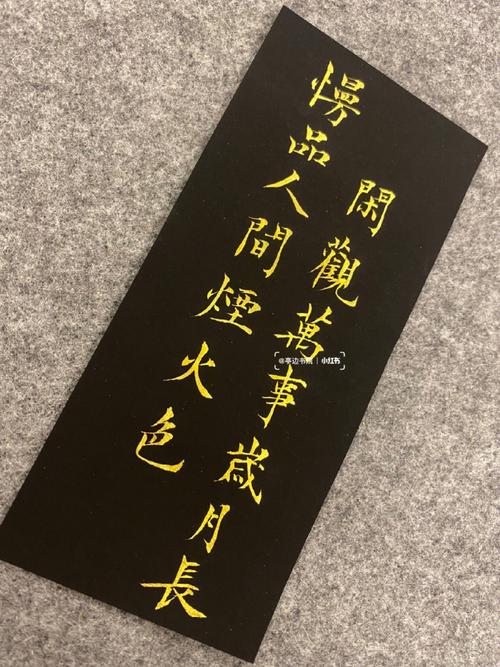 慢品人間煙火色
閑觀萬事歲月長
@亭边书 | 小红书